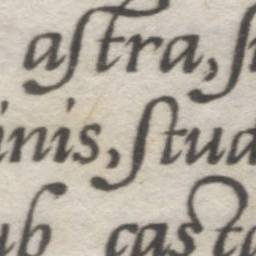 aſtra, ſi
inis, ſtud
ub casta